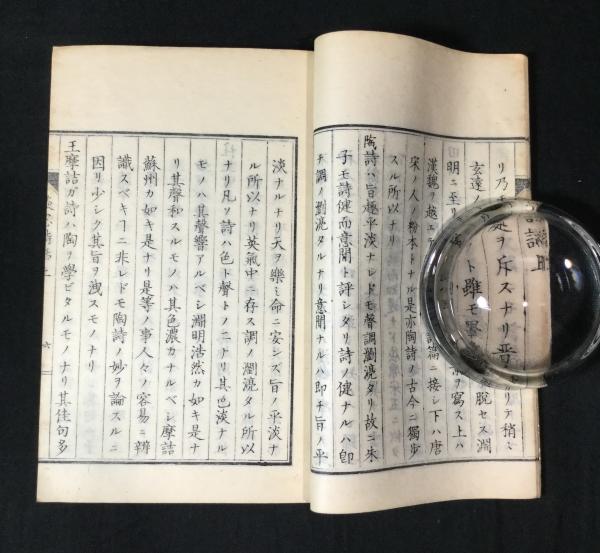 リ乃チ　是ヲ斥スナリ晋　ルリテ稍ミ
玄遠ノ　ト雖モ　脱セス淵
明ニ至リ　ヲ寫ス上ハ
漢魏ヲ越エ　詩篇ニ接シ下ハ唐
宋ノ人ノ粉本トナル是亦陶詩ノ古今ニ獨歩
スル所以ナリ
陶詩ハ旨趣平淡ナレドモ聲調瀏湸タリ故ニ朱
子モ詩健而意閑ト評シタリ詩ノ健ナルハ即
チ調ノ瀏湸タルナリ意閑ナルハ即チ旨ノ平
淡ナルナリ天ヲ樂ミ命ニ安シズ旨ノ平淡ナ
ル所以ナリ英氣中ニ存ス調ノ瀏湸タル所以
ナリ凡ソ詩ハ色ト聲トノ二ナリ其色淡ナル
モノハ其聲響アルベシ淵明浩然カ如キ是ナ
リ其聲和スルモノハ其色濃カナルベシ摩詰
蘇州カ如キ是ナリ是等ノ事人々ノ容易ニ辨
識スベキヿニ非レドモ陶詩ノ妙ヲ論スルニ
因リ少シク其旨ヲ洩スモノナリ
王摩詰ガ詩ハ陶ヲ學ビタルモノナリ其佳句多
六